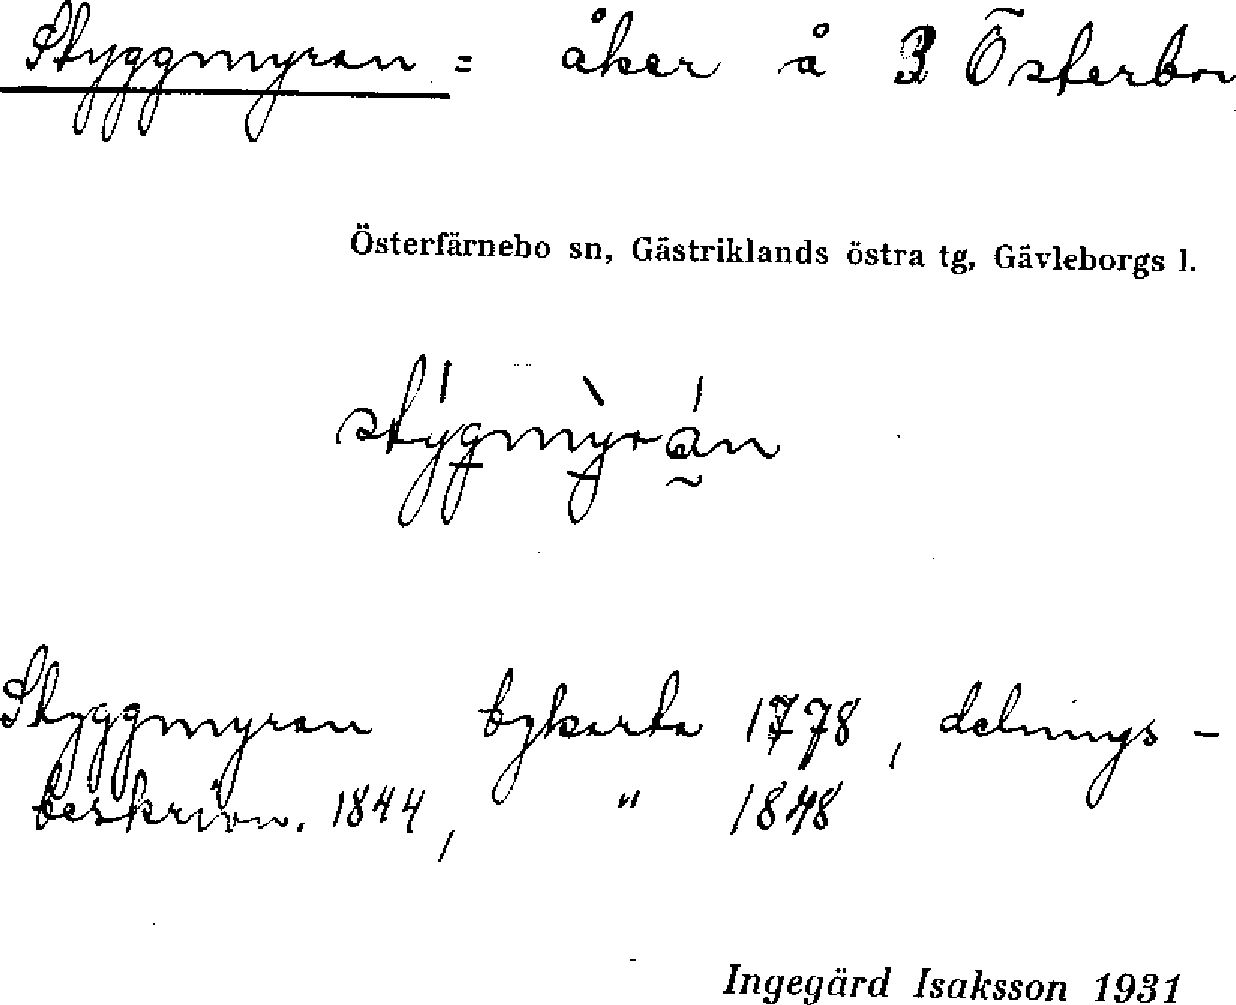 Styggmyran = åker å 3 Österbor
Österfärnebo sn, Gästriklands östra tg, Gävleborgs l.
stýgmỳrán
Styggmyran bykarta 1778, delnings-
beskrivn. 1844, " 1848
Ingegärd Isaksson 1931